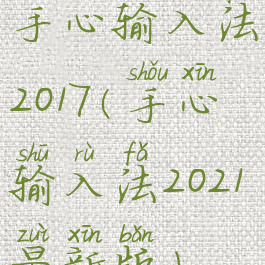 手心输入法
shǒu xīn
2017(手心
shū rù fǎ
输入法2021
zuì xīn bǎn
最新版)